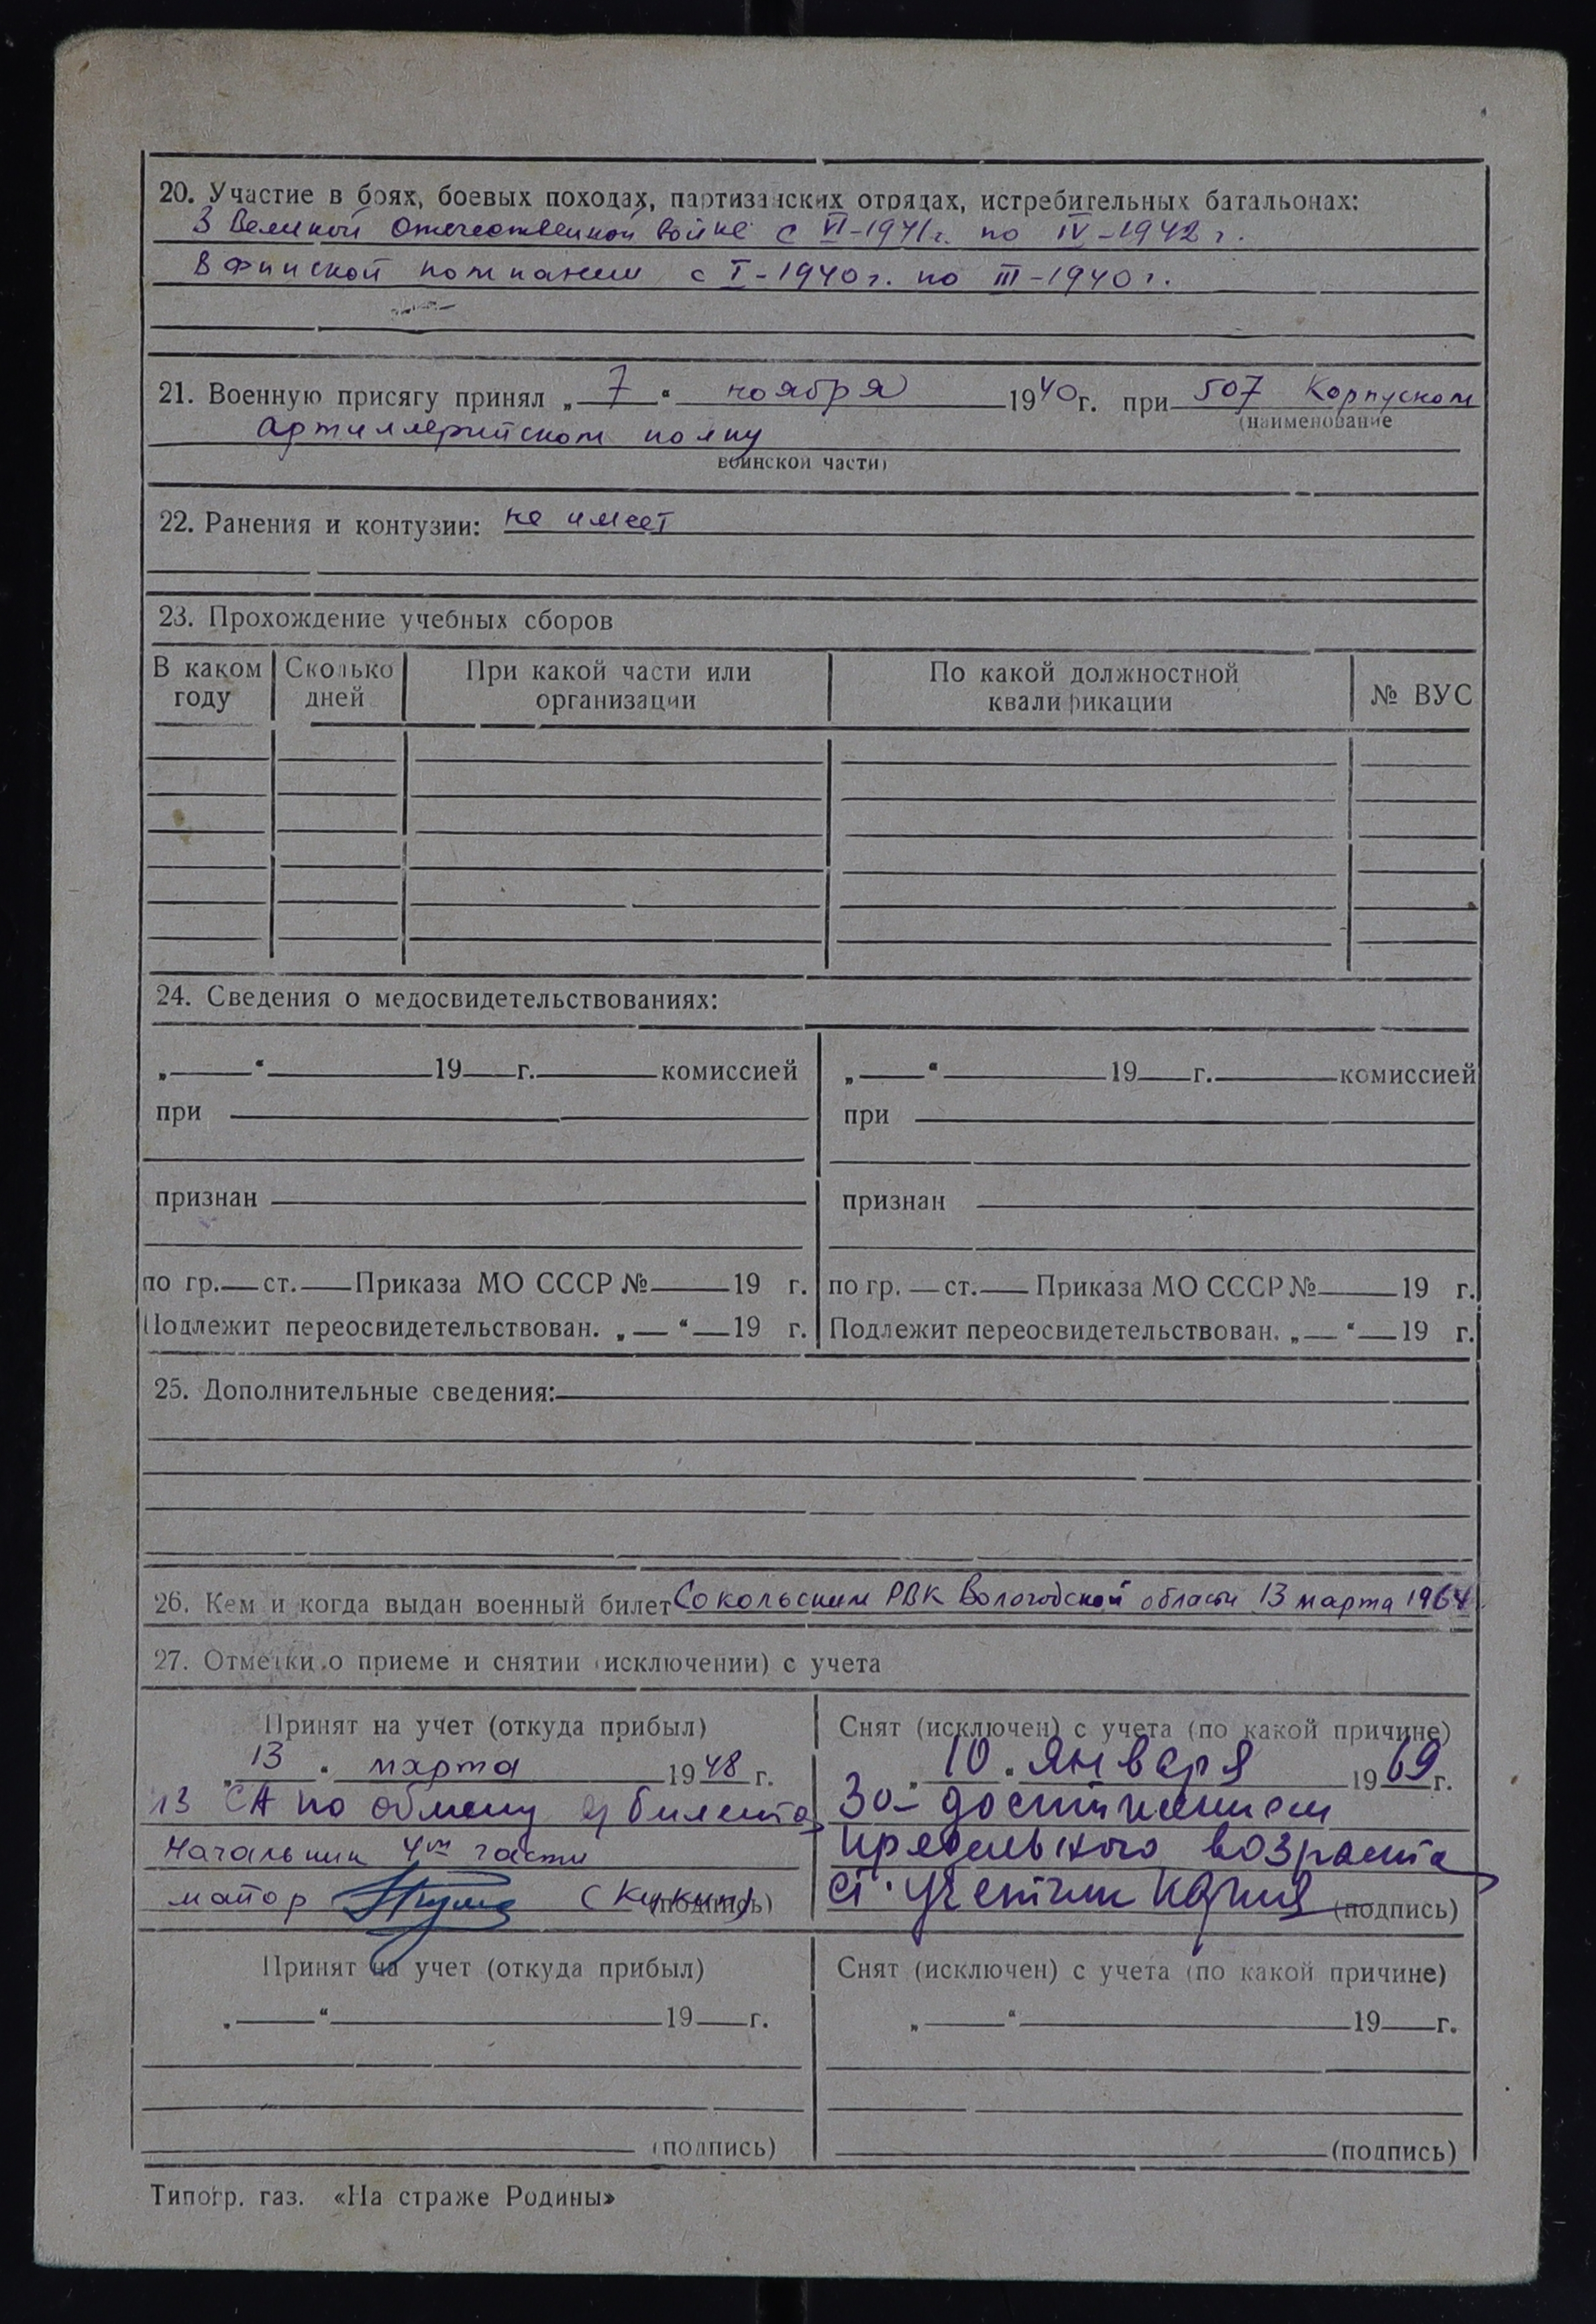 20. Участие в боях, боевых походах, партизанских отрядах, истребительных батальонах:
В Великой Отечественной войне с VI-1941г. по IV-1942 г.
В Финской компании с I-1940г. по III-1940г.
21. Военную присягу принял „ 7 “ ноября 1940г. при 507 Корпусном
(наименование
артиллерийском полку
воинской части)
22. Ранения и контузии: не имеет
23. Прохождение учебных сборов
В каком году Сколько дней При какой части или организации По какой должностной квалификации № ВУС
24. Сведения о медосвидетельствованиях:
„ “ 19 г. комиссией „ “ 19 г. комиссией
при при
признан признан
по гр. ст. Приказа МО СССР № 19 г. по гр. ст. Приказа МО СССР № 19 г.
Подлежит переосвидетельствован. „ “ 19 г. Подлежит переосвидетельствован. „ “ 19 г.
25. Дополнительные сведения:
26. Кем и когда выдан военный билет Сокольским РВК Вологодской области 13 марта 1964
27. Отметки о приеме и снятии (исключении) с учета
Принят на учет (откуда прибыл) Снят (исключен) с учета (по какой причине)
„ 13 “ марта 1948 г. „ 10 “ января 1969 г.
из СА по обмену в/билета За достижением
Начальник 4ой части предельного возраста
майор (Кикин) (подпись) ст. (подпись)
Принят на учет (откуда прибыл) Снят (исключен) с учета (по какой причине)
„ “ 19 г. „ “ 19 г.
(подпись) (подпись)
Типогр. газ. «На страже Родины»